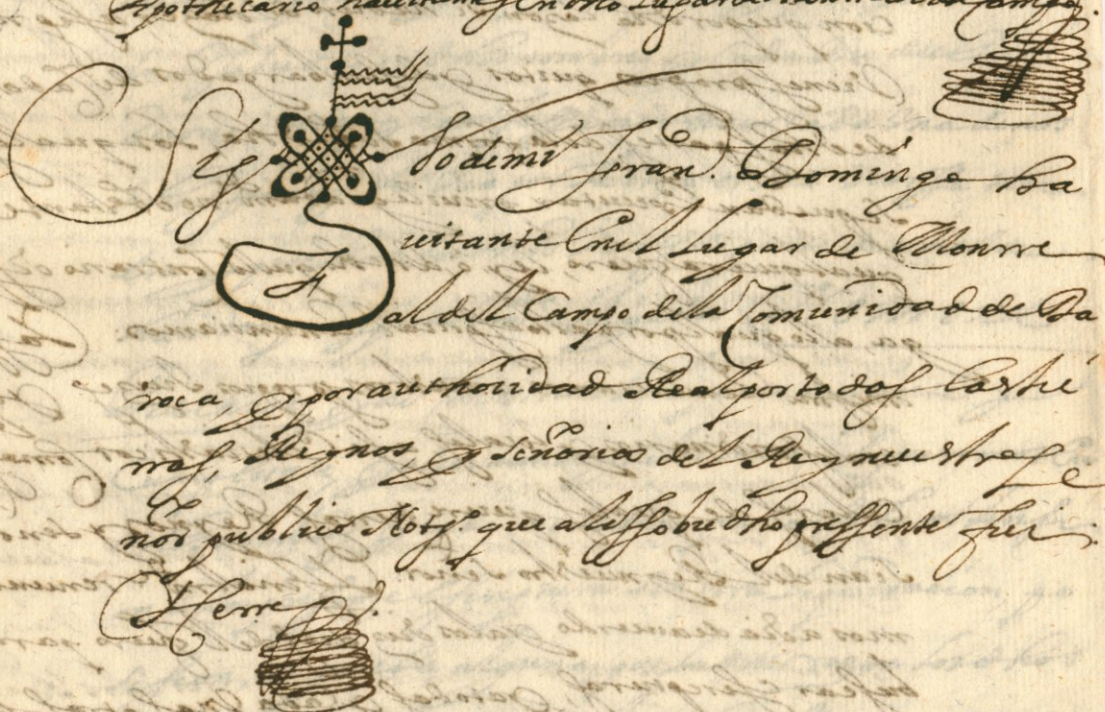 Apothecario havitantes en dho Lugar de Campo.
Sig no de mi Fran. Domingo ha
vitante En el Lugar de Monrre
al del Campo de la Comunidad de Da
roca, y por authoridad Real por todas las tie
rras, Reynos, y señorios del Rey nuestro se
ñor publico Notº. que a lo sobredho pressente fui
Herre